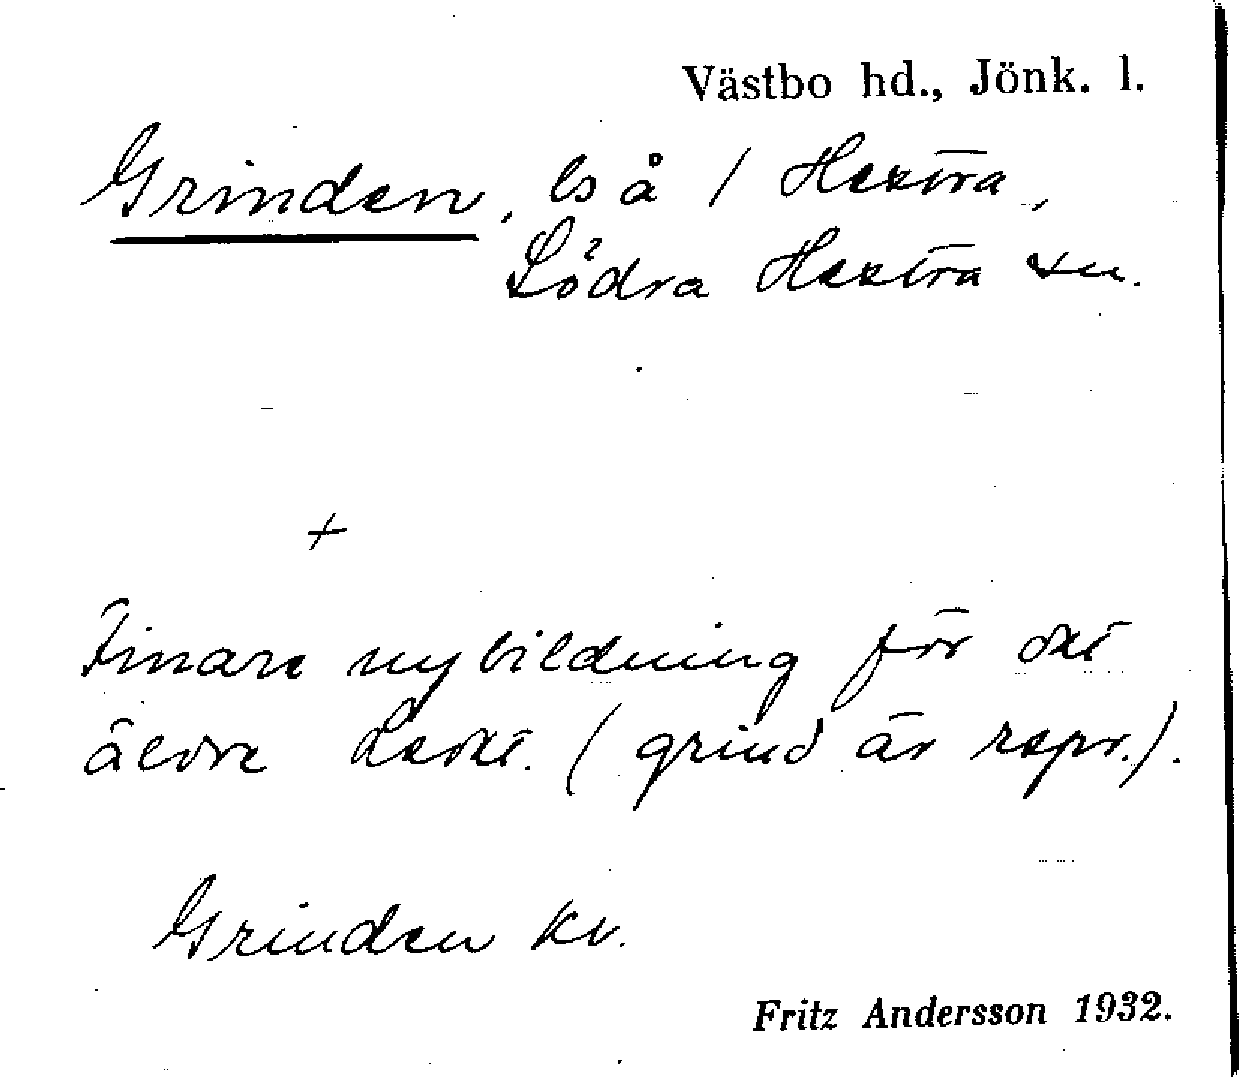 Västbo hd., Jönk. l.
Grinden, ls å / Hestra,
Södra Hestra sn.
+
Finare nybildning för det
äldre Ledet. (grind är repr.).
Grinden kv.
Fritz Andersson 1932.